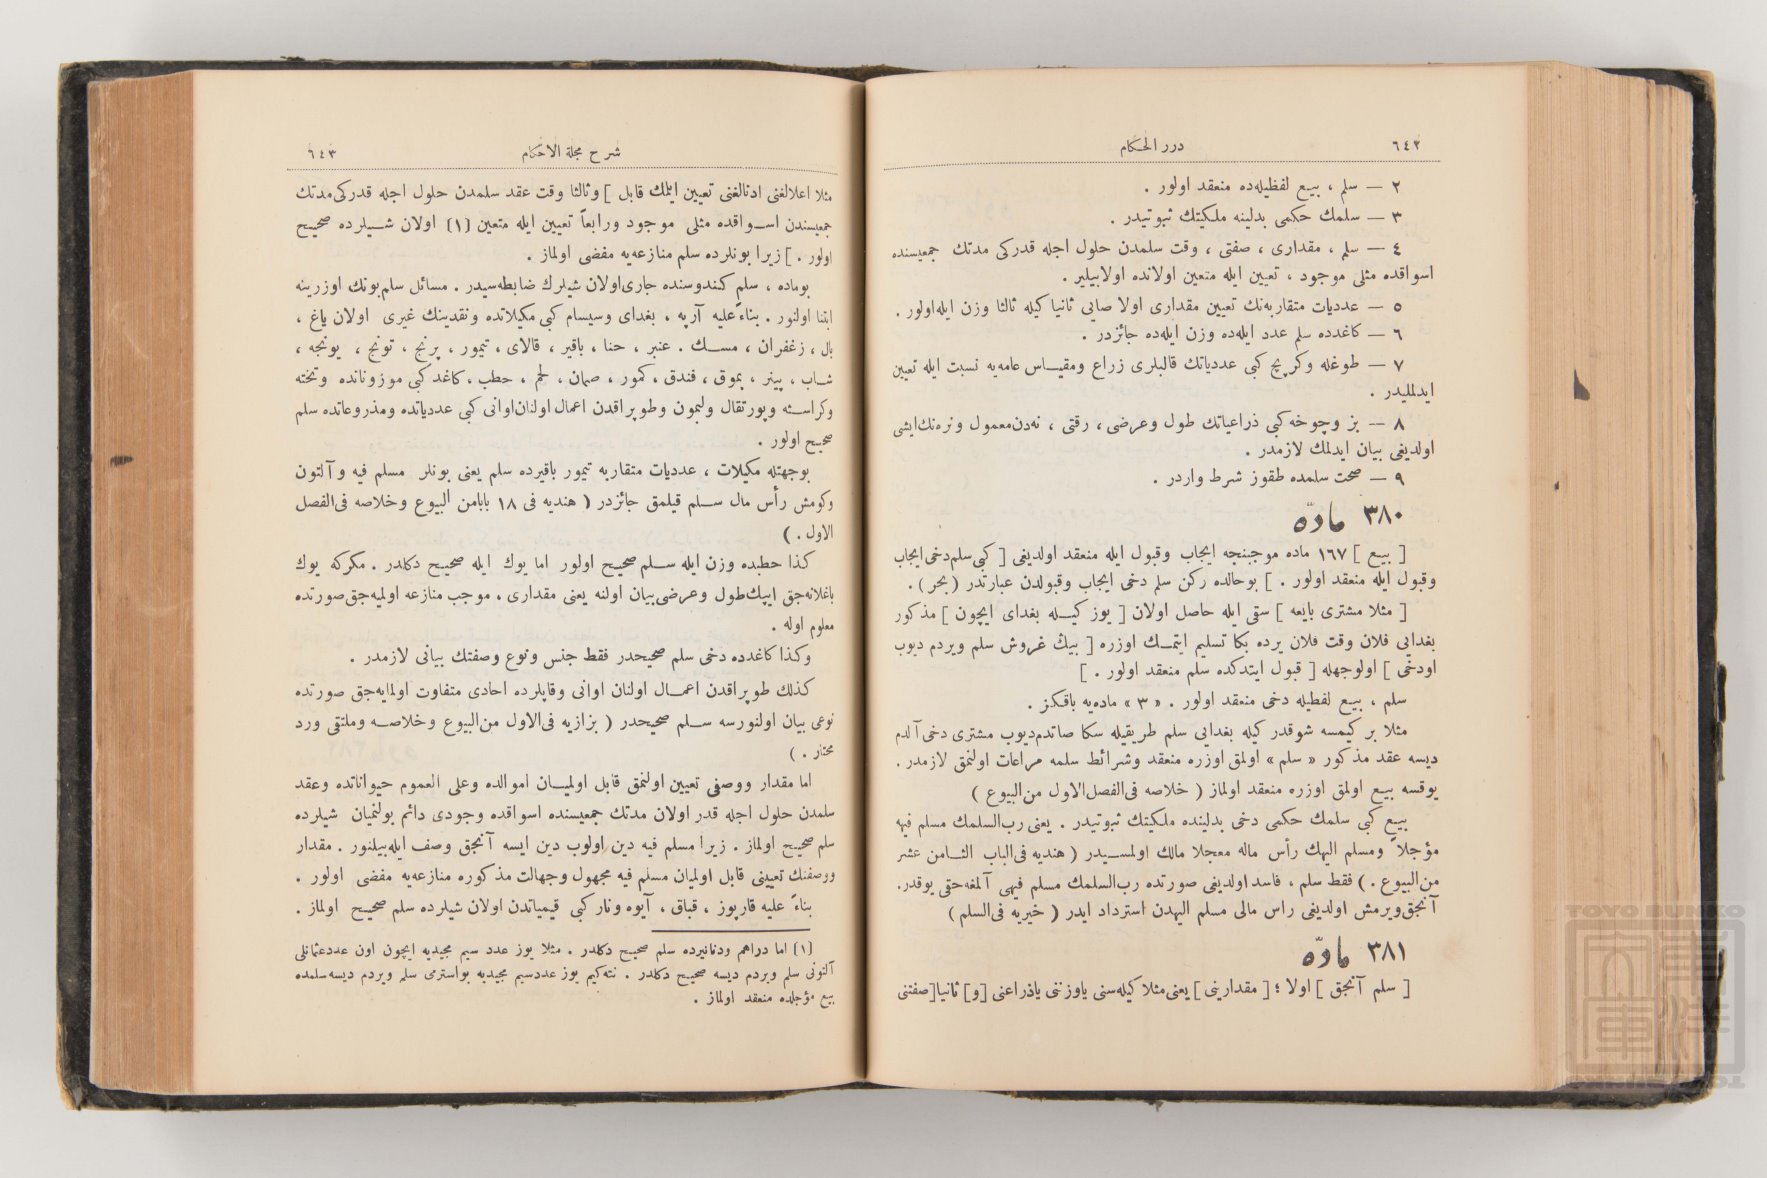 ٦٤٢
درر الحكام
٢ — سلم ، بيع لفظيله‌ده منعقد اولور .
٣ — سلمك حكمى بدلينه ملكيتك ثبوتيدر .
٤ — سلم ، مقدارى ، صفتى ، وقت سلمدن حلول اجله قدركى مدتك جمعيسنده
اسواقده مثلى موجود ، تعيين ايله متعين اولانده اولابيلير .
٥ — عدديات متقاربه‌نك تعيين مقدارى اولا صايى ثانيا كيله ثالثا وزن ايله‌اولور .
٦ — كاغدده سلم عدد ايله‌ده وزن ايله‌ده جائزدر .
٧ — طوغله وكرپيچ كبى عددياتك قالبلرى زراع ومقياس عامه‌يه نسبت ايله تعيين
ايدلمليدر .
٨ — بز وچوخه‌كبى ذراعياتك طول وعرضى ، رقتى ، نه‌دن‌معمول ونره‌نك‌ايشى
اولديغى بيان ايدلمك لازمدر .
٩ — صحت سلمده طقوز شرط واردر .
٣٨٠ مادّه
[ بيع ] ١٦٧ ماده موجبنجه ايجاب وقبول ايله منعقد اولديغى [ كبى‌سلم‌دخى‌ايجاب
وقبول ايله منعقد اولور . ] بوحالده ركن سلم دخى ايجاب وقبولدن عبارتدر ( بحر ) .
[ مثلا مشترى بايعه ] سقى ايله حاصل اولان [ يوز كيله بغداى ايچون ] مذكور
بغدايى فلان وقت فلان يرده بكا تسليم ايتمك اوزره [ بيك غروش سلم ويردم ديوب
اودخى ] اولوجهله [ قبول ايتدكده سلم منعقد اولور . ]
سلم ، بيع لفظيله دخى منعقد اولور . « ٣ » ماده‌يه باقكز .
مثلا بر كيمسه شوقدر كيله بغدايى سلم طريقيله سكا صاتدم‌ديوب مشترى دخى‌آلدم
ديسه عقد مذكور « سلم » اولمق اوزره منعقد وشرائط سلمه مراعات اولنمق لازمدر .
يوقسه بيع اولمق اوزره منعقد اولماز ( خلاصه فى‌الفصل‌الاول من‌البيوع )
بيع كبى سلمك حكمى دخى بدلينده ملكيتك ثبوتيدر . يعنى رب‌السلمك مسلم فيه
مؤجلاً ومسلم اليهك رأس ماله معجلا مالك اولمسيدر ( هنديه فى‌الباب الثامن عشر
من‌البيوع . ) فقط سلم ، فاسد اولديغى صورتده رب‌السلمك مسلم فيهى آلمغه‌حقى يوقدر.
آنجق‌ويرمش اولديغى راس مالى مسلم اليهدن استرداد ايدر ( خيريه فى‌السلم )
٣٨١ مادّه
[ سلم آنجق ] اولا ؛ [ مقدارينى ] يعنى‌مثلا كيله‌سنى ياوزننى ياذراعنى [و] ثانيا[صفتنى
شرح مجلة الاحكام
٦٤٣
مثلا اعلالغنى ادنالغنى تعيين ايتمك قابل ] وثالثا وقت عقد سلمدن حلول اجله قدركى‌مدتك
جمعيسندن اسواقده مثلى موجود ورابعاً تعيين ايله متعين [١] اولان شيلرده صحيح
اولور . ] زيرا بونلرده سلم منازعه‌يه مفضى اولماز .
بوماده ، سلم كندوسنده جارى‌اولان شيلرك ضابطه‌سيدر . مسائل سلم‌بونك اوزرينه
ابتنا اولنور . بناءً‌عليه آرپه ، بغداى وسيسام كبى مكيلاتده ونقدينك غيرى اولان ياغ ،
بال ، زعفران ، مسك . عنبر ، حنا ، باقير ، قالاى ، تيمور ، پرنج ، تونج ، يونجه ،
شاب ، پينر ، پموق ، فندق ، كمور ، صمان ، لحم ، حطب ، كاغد كبى موزوناتده وتخته
وكراسته وپورتقال وليمون وطوپراقدن اعمال اولنان‌اوانى كبى عددياتده ومذروعاتده سلم
صحيح اولور .
بوجهتله مكيلات ، عدديات متقاربه تيمور باقيرده سلم يعنى بونلر مسلم فيه وآلتون
وكومش رأس مال سلم قيلمق جائزدر ( هنديه فى ١٨ بابامن البيوع وخلاصه فى‌الفصل
الاول . )
كذا حطبده وزن ايله سلم صحيح اولور اما يوك ايله صحيح دكلدر . مكركه يوك
باغلانه‌جق ايپك‌طول وعرضى‌بيان اولنه يعنى مقدارى ، موجب منازعه اولميه‌جق‌صورتده
معلوم اوله .
وكذا كاغدده دخى سلم صحيحدر فقط جنس ونوع وصفتك بيانى لازمدر .
كذلك طوپراقدن اعمال اولنان اوانى وقاپلرده احادى متفاوت اولمايه‌جق صورتده
نوعى بيان اولنورسه سلم صحيحدر ( بزازيه فى‌الاول من‌البيوع وخلاصه وملتقى ورد
مختار . )
اما مقدار ووصفى تعيين اولنمق قابل اولميان اموالده وعلى العموم حيواناتده وعقد
سلمدن حلول اجله قدر اولان مدتك جمعيسنده اسواقده وجودى دائم بولنميان شيلرده
سلم صحيح اولماز . زيرا مسلم فيه دين اولوب دين ايسه آنجق وصف ايله‌بيلنور . مقدار
ووصفنك تعيينى قابل اولميان مسلم فيه مجهول وجهالت مذكوره منازعه‌يه مفضى اولور .
بناءً عليه قارپوز ، قباق ، آيوه ونار كبى قيمياتدن اولان شيلرده سلم صحيح اولماز .
[١] اما دراهم ودنانيرده سلم صحيح دكلدر . مثلا يوز عدد سيم مجيديه ايچون اون عددعثمانلى
آلتونى سلم ويردم ديسه صحيح دكلدر . نته‌كيم يوز عددسيم مجيديه بواسترمى سلم ويردم ديسه‌سلمده
بيع مؤجلده منعقد اولماز .
TOYO BUNKO